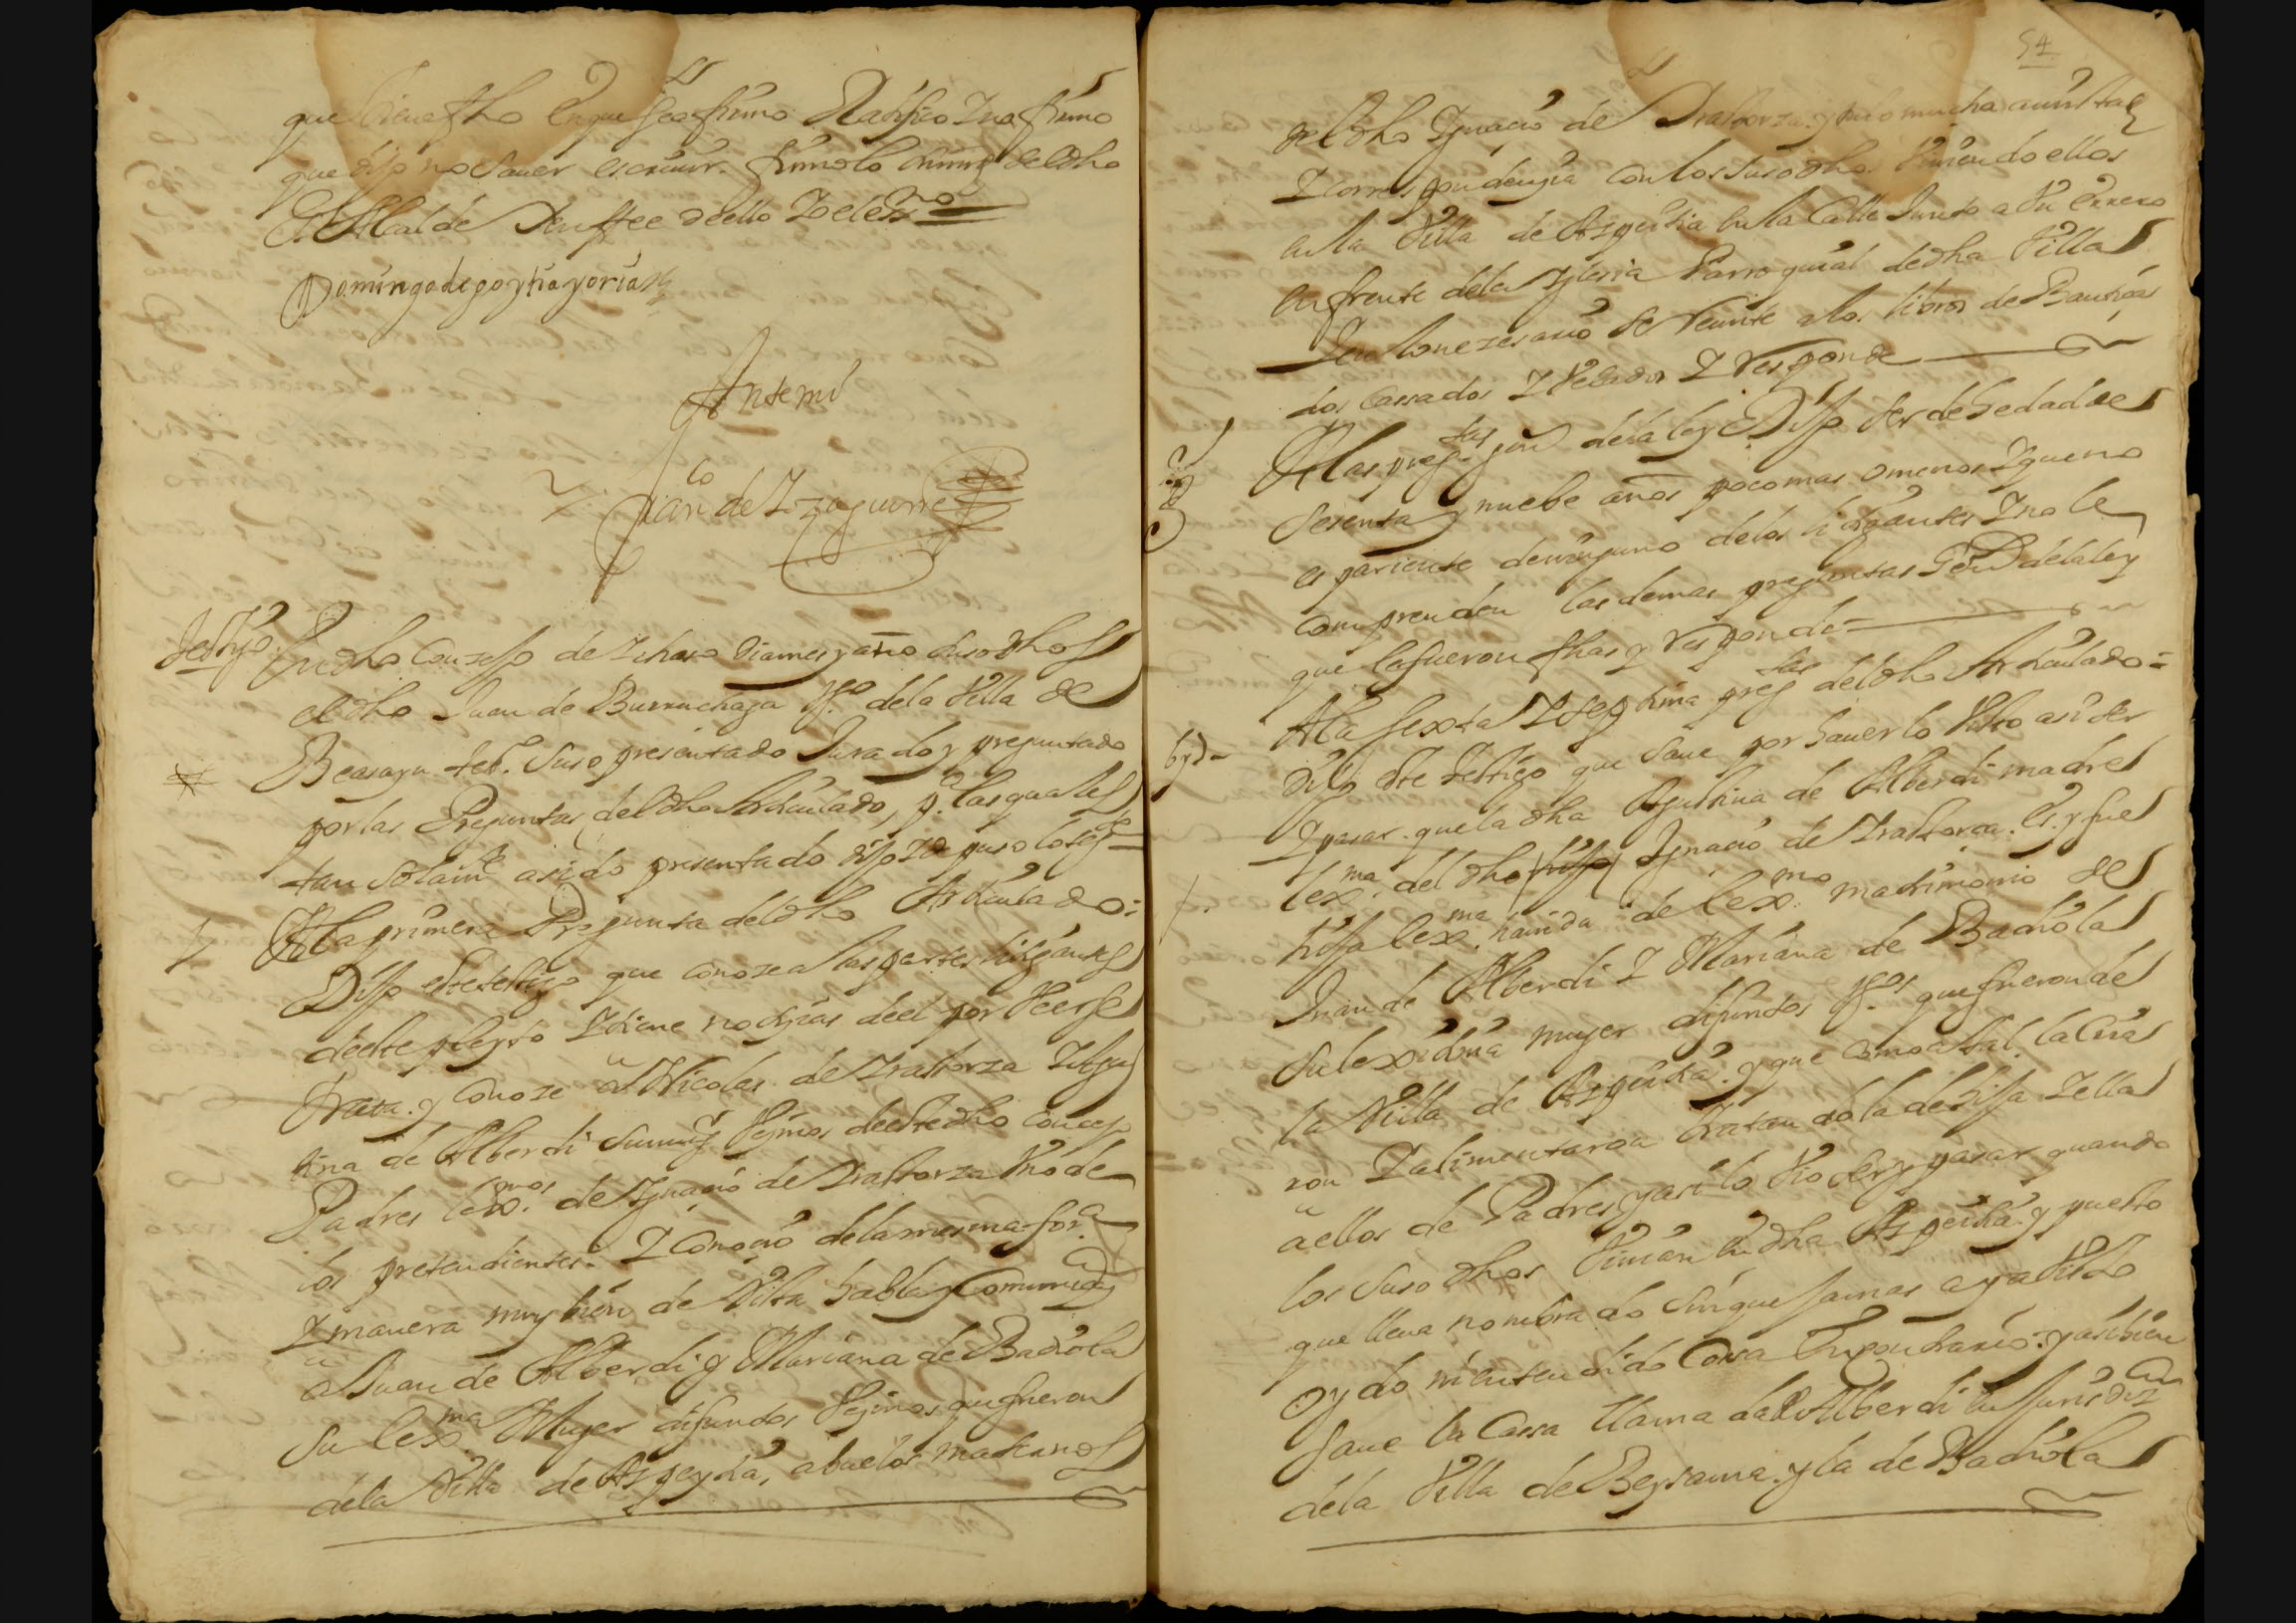 que lleua fho en que se afirmo Ratifico I no firmo
que dijo no sauer escriuir. firmolo su mrd del dho
S. Alcalde En ffee dello Yo el ess.no
Domingo de goytia yoria
Ante mi
Fran.co de Yzaguirre
Testigo. En dho Conzejo de Ichaso dia mes y año suso dhos
el dho Juan de Burruchaga V.o de la Villa de
Beasayn test.o suso presentado Jurado y preguntado
por las Preguntas del dho Articulado, p.a las quales
tan solam.te a sido presentado dijo I depuso lo sig.te
1 A la primera Pregunta del dho Articulado:
Dijo este testigo que conoze a las partes litigantes
deste pleyto I tiene notiçias de el por Veer se
trata. y conoze a Nicolas de Iraltorza I Agus
tina de Alberdi su muger Veçinos deste dho Concejo
Padres lex.mos de Ignaçio de Iraltorza Vno de
los pretendientes. I Conoçio de la mesma for.a
I manera muy bien de Vista habla y Comunicaçion
a Juan de Alberdi y Mariana de Badiola
su lex.ma Muger difuntos Veçinos que fueron
de la Villa de Azpeytia, abuelos maternos
54
del dho Ignaçio de Iraltorza. y tubo mucha amistad
I correspondençia con los suso dhos Viuiendo ellos
en la Villa de Azpeitia en la Calle Junto a
en frente de la Yglesia Parroquial de dha Villa
I en lo nezesario se remite a los libros de Bautiça
dos Cassados I Velados I Responde
A las preg.tas gen.s de la ley Dijo ser de hedad de
sesenta y nuebe años poco mas o menos I que no
es pariente de ninguno de los litigantes I no le
comprenden las demas preguntas Gen.s de la ley
que le fueron fhas y Responde
6 y 7 A la sexta I septima preg.tas del dho Articulado=
Dijo este testigo que saue por hauerlo Visto asi ser
I pasar. que la dha Agustina de Alberdi madre
lex.ma del dho hijo Ignaçio de Iraltorza. Es y fue
hija lex.ma hauida de lex.mo matrimonio de
Juan de Alberdi I Mariana de Badiola
su lexitima muger difuntos V.os que fueron de
la Villa de Azpeitia. y que como a tal. la Cria
ron I alimentaron tratandola de hija I ella
a ellos de Padres y asi lo Vio ser y pasar quando
los suso dhos Viuian En dha Azpeitia. y puesto
que lleua nombrado sin que Jamas aya Visto
oydo ni entendido Cosa En contrario: y asi bien
saue la Cassa llamada Alberdi en Jurisdiz.on
de la Villa de Beyzama. y la de Badiola